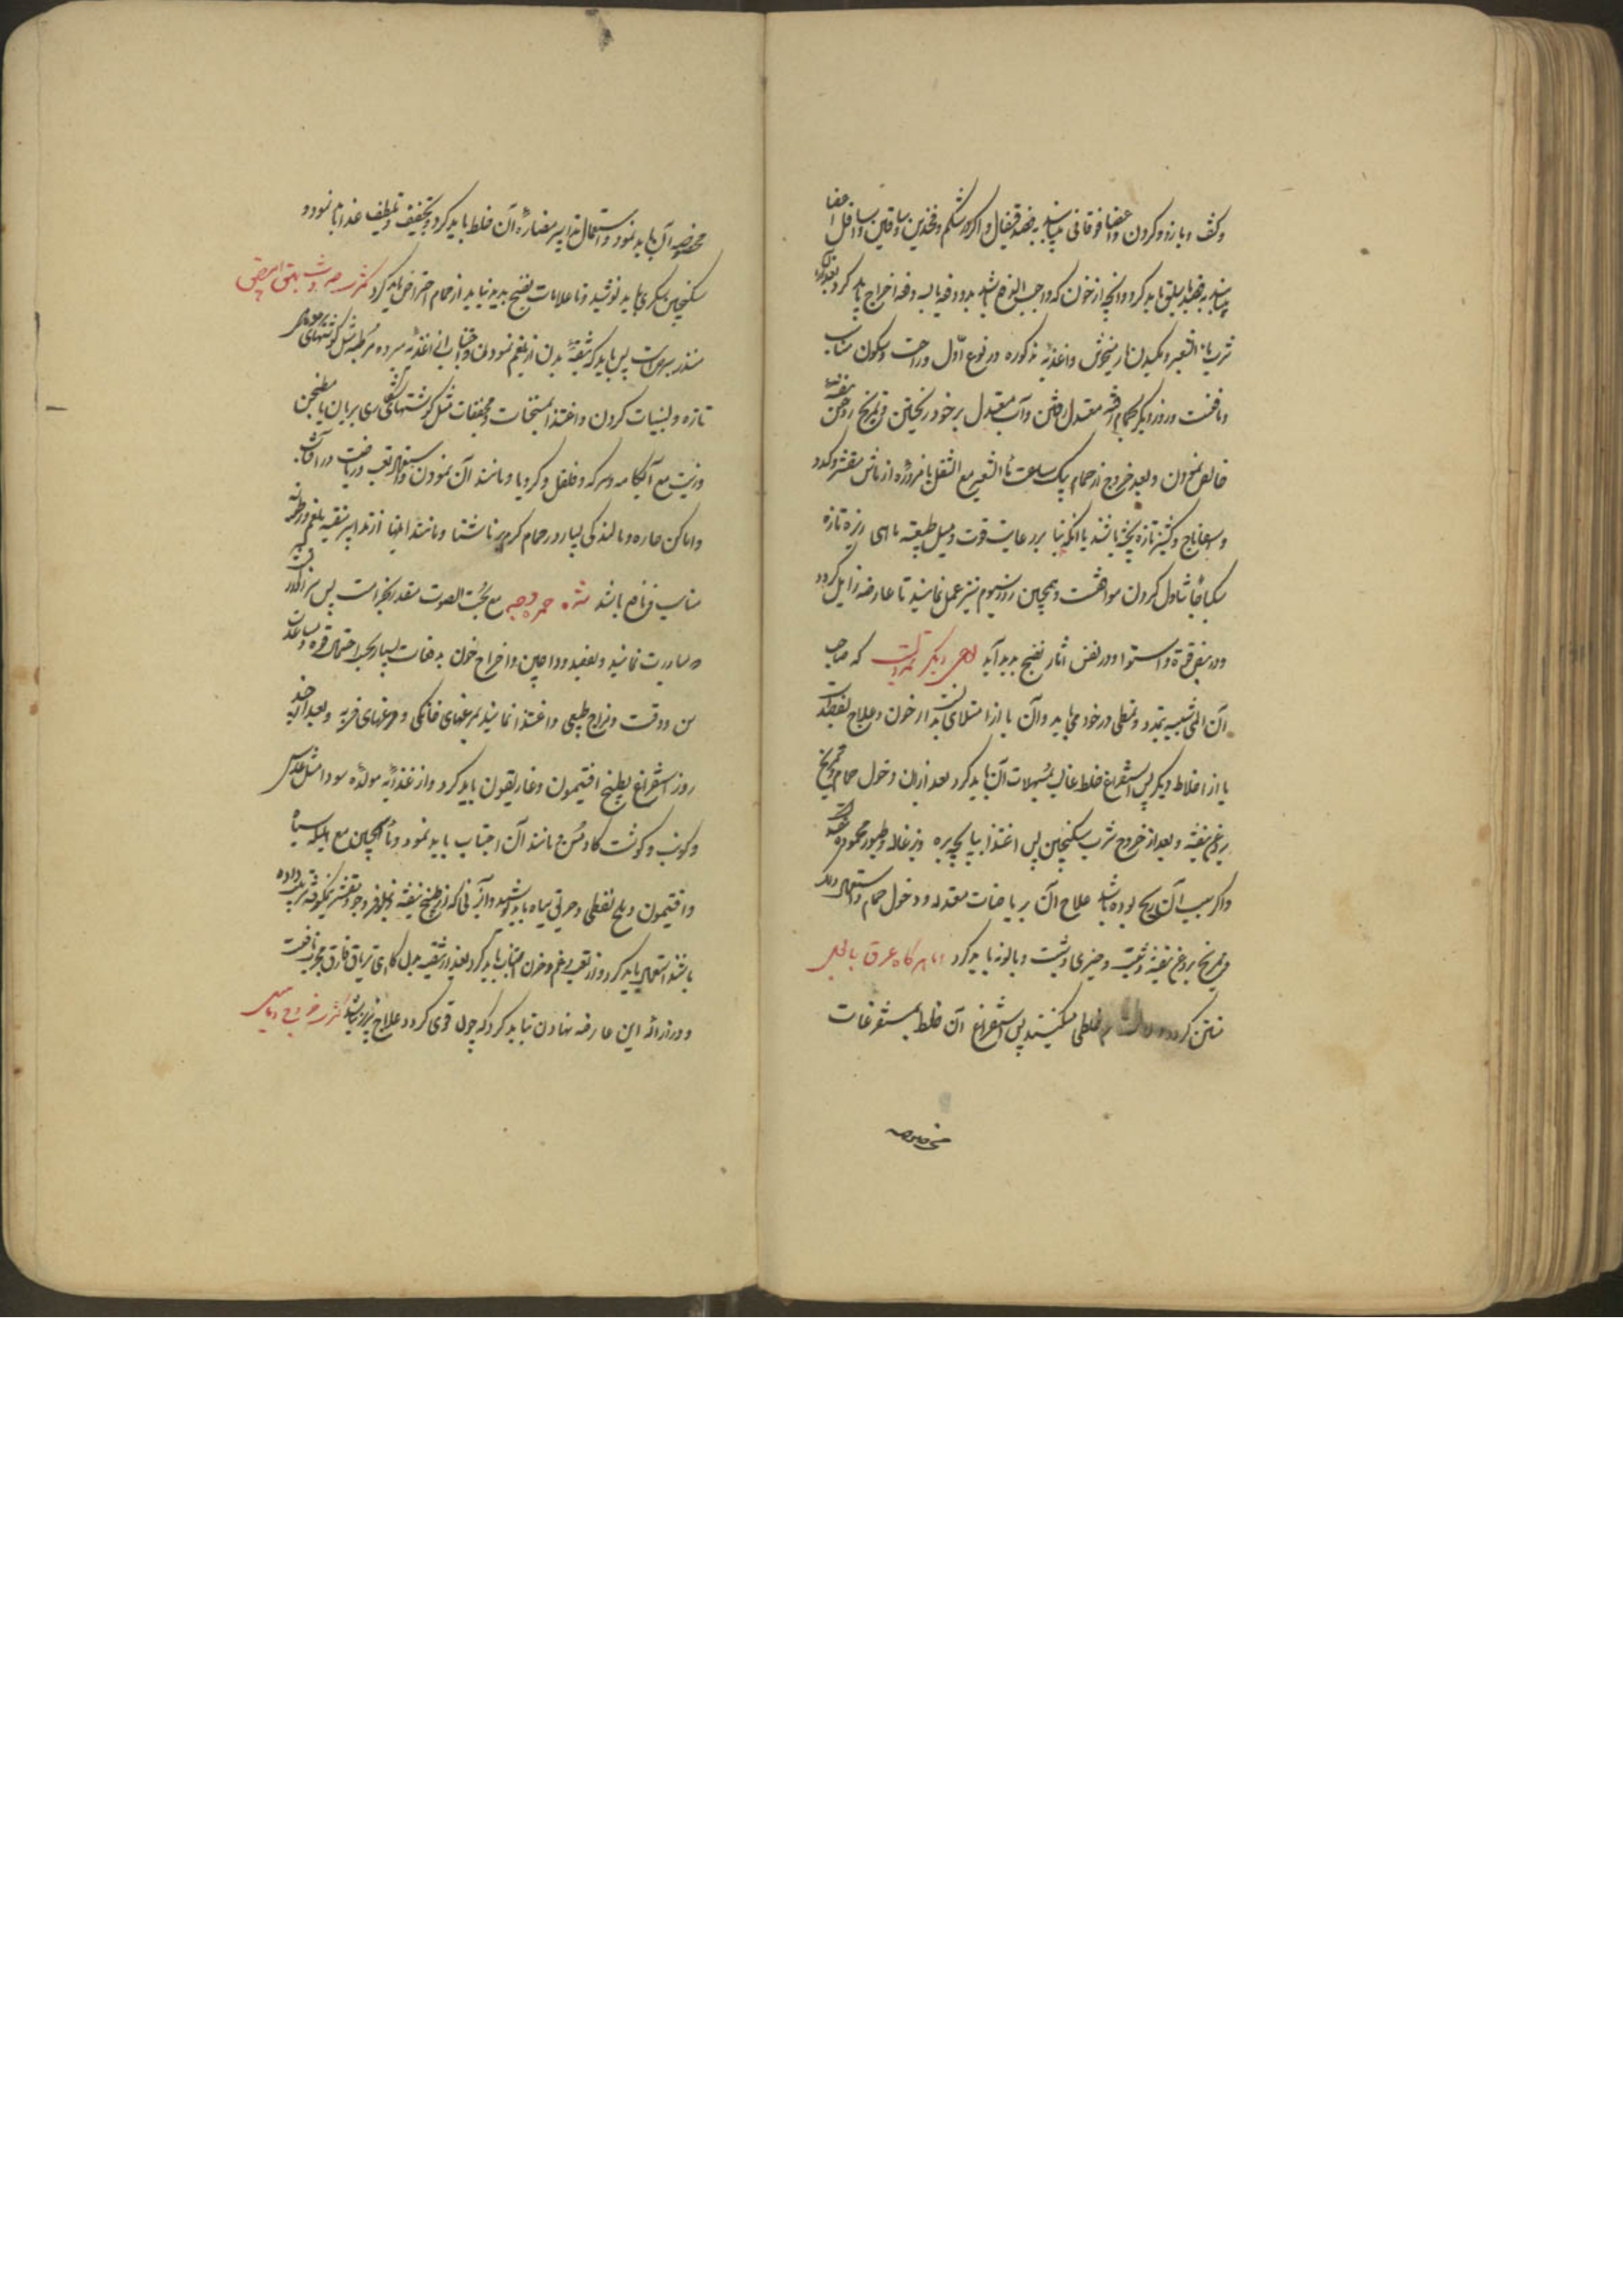 وکتف و بازو و کردن و اعضا فوقانی باشد بفصد قیفال و اگر در شکم و فخذین و ساقین و اسافل اعضا
باشد بفصد باسلیق باید کرد و آنچه از خون که واجب الاخراج باشد بدو دفعه یا بسه دفعه اخراج باید کرد
شرب ماء الشعیر و مکیدن انار میخوش و اغذیهٔ مذکوره در نوع اوّل و راحت و سکون مناسب
و نافعست و روز دیگر بحمام معتدل رفتن و آب معتدل بر خود ریختن و تمریخ روغن بنفشه
خالص نمودن و بعد خروج از حمام بیک ساعت ماء الشعیر مع الثفل یا مزوره از ماش مقشر و کدو
و اسفاناج و کشنیز تازه پخته باشند یا آنکه بنا بر رعایت قوت و میل طبیعت ماهی ریزه تازه
سکباجا تناول کردن موافقست و همچنین روز سیوم نیز عمل نمایند تا عارضه زایل کردد
و در نبض قوة و استوا و در نفس آثار نضج بدید آید که صاحب
آن المی شبیه بتمدد و تمطی در خود می یابد و آن یا از امتلای بدن از خون و علاج فصد است
یا از اخلاط دیکر پس استفراغ خلط غالب بمسهلات آن باید کرد بعد ازان دخول حمام و تمریخ
بروغن بنفشه و بعد از خروج شرب سکنجبین پس اغتذا بپاچه بره و بزغاله و طیور محموده
و اگر سبب آن ریح بوده باشد علاج آن بریاضات معتدله و دخول حمام و استعمال دلک
و تمریخ بروغن بنفشه و شبت و خیری و بابونه باید کرد اما هرگاه عرق بالفعل
منتن کردد خلطی میکنند پس استفراغ آن خلط بمستفرغات
مخصوصه
مخصوصه آن باید نمود و استعمال تدابیر مضادهٔ آن خلط باید کرد و تخفیف و تلطیف غذا باید نمود و
سکنجبین سکری باید نوشید و تا علامات نضج بدید نیاید از حمام احتراز باید کرد
منذر ببرص است پس باید که تنقیهٔ بدن از بلغم نمودن و اجتناب از اغذیهٔ مبرده مرطبه مثل گوشتهای
تازه و لبنیات کردن و اغتذا بمسخنات و مجففات مثل گوشتهای شکاری بریان یا مطجن
و زیت مع آبکامه و سرکه و فلفل و کرویا و مانند آن نمودن و استعمال تعب و ریاضت در آفتاب
و اماکن حاره و مالندکی بسیار در حمام گرم بر ناشتا و مانند اینها از تدابیر تنقیه بلغم و رطوبة
مناسب و نافع باشد حمرة وجه مع بحّت الصوت منذر بجذام است پس
مبادرت نمایند و بفصد وداجین و اخراج خون بدفعات بسیار بحسب احتمال قوة و مساعدت
سن و وقت و مزاج طبیعی و اغتذا نمایند بمرغهای خانگی و مرغهای فربه و بعد از چند
روز استفراغ بطبیخ افتیمون و غاریقون باید کرد و از اغذیهٔ مولدهٔ سودا مثل عدس
و کرنب و گوشت گاو مسن و مانند آن اجتناب باید نمود و ماء الجبن مع هلیله سیاه
و افتیمون و ملح نفطی و خربق سیاه باید نوشید و آبزنی که از طبیخ بنفشه و نیلوفر و جو مقشر
باشند استعمال باید کرد و از تعب و غم و حزن اجتناب باید کرد و بعد از تنقیه بدل گاهی تریاق فاروق مجرب نافعست
و در ازالهٔ این عارضه تهاون نباید کرد که چون قوی گردد علاج پذیر نباشد